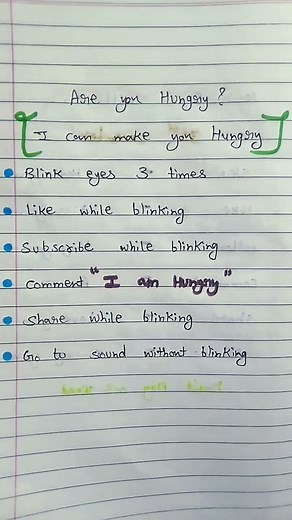 Are you Hungry ?
[ I can make you Hungry ]
• Blink eyes 3 times
• Like while blinking
• Subscribe while blinking
• Comment "I am Hungry"
• Share while blinking
• Go to sound without blinking